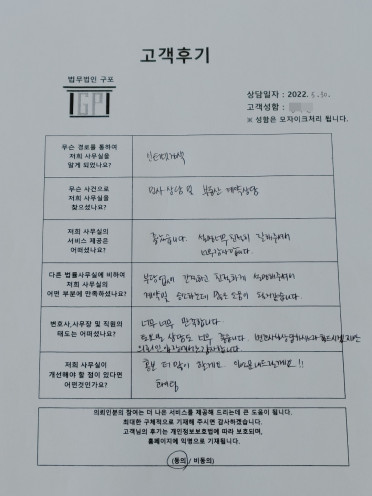 고객후기
법무법인 구포
GP
상담일자 : 2022. 5. 30.
고객성함 :
※ 성함은 모자이크처리 됩니다.
무슨 경로를 통하여
저희 사무실을
알게 되었나요?
인터넷검색
무슨 사건으로
저희 사무실을
찾으셨나요?
민사 상담 및 부동산 계약상담
저희 사무실의
서비스 제공은
어떠셨나요?
좋았습니다. 설명너무 친절히 잘해주셔서
너무감사합니다.
다른 법률사무실에 비하여
저희 사무실의
어떤 부분에 만족하셨나요?
부담없이 간결하고 친절하게 설명해주셔서
계약및 소송하는데 많은 도움이 되었습니다.
변호사,사무장 및 직원의
태도는 어떠셨나요?
너무너무 만족합니다.
상담도 너무 좋습니다.
저희 사무실이
개선해야 할 점이 있다면
어떤것인가요?
홍보 더 많이 하세요. !!
의뢰인분의 참여는 더 나은 서비스를 제공해 드리는데 큰 도움이 됩니다.
최대한 구체적으로 기재해 주시면 감사하겠습니다.
고객님의 후기는 개인정보보호법에 따라 보호되며,
홈페이지에 익명으로 기재됩니다.
(동의 / 비동의)